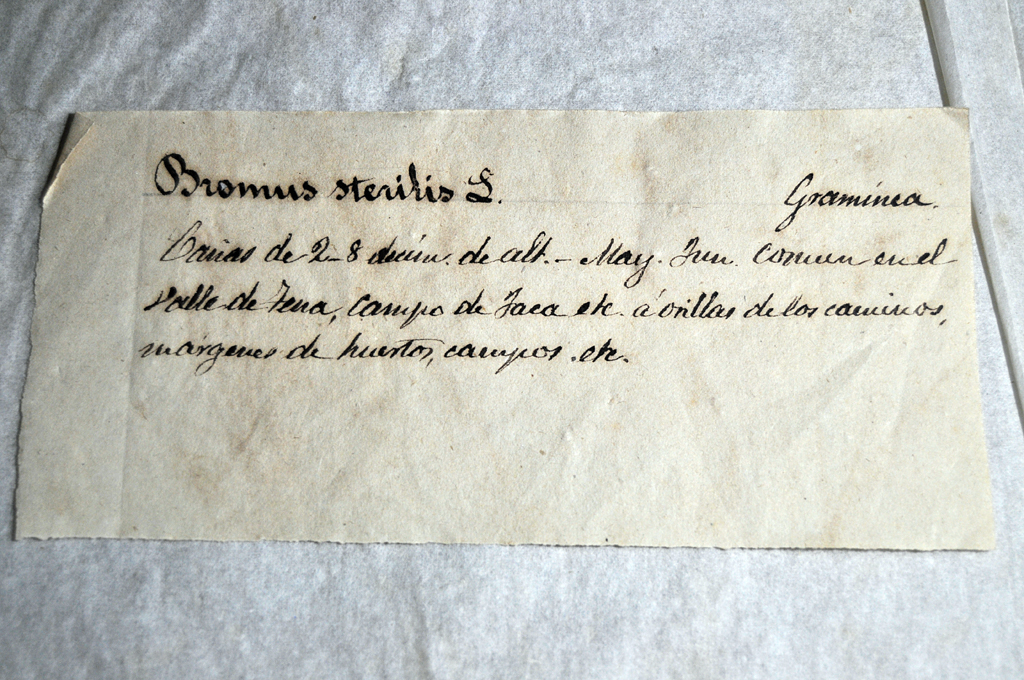 Bromus sterilis L. Gramínea.
Cañas de 2-8 decím. de alt. - May. Jun. Comun en el
valle de Tena, Campo de Jaca etc. á orillas de los caminos,
márgenes de huertos, campos etc.